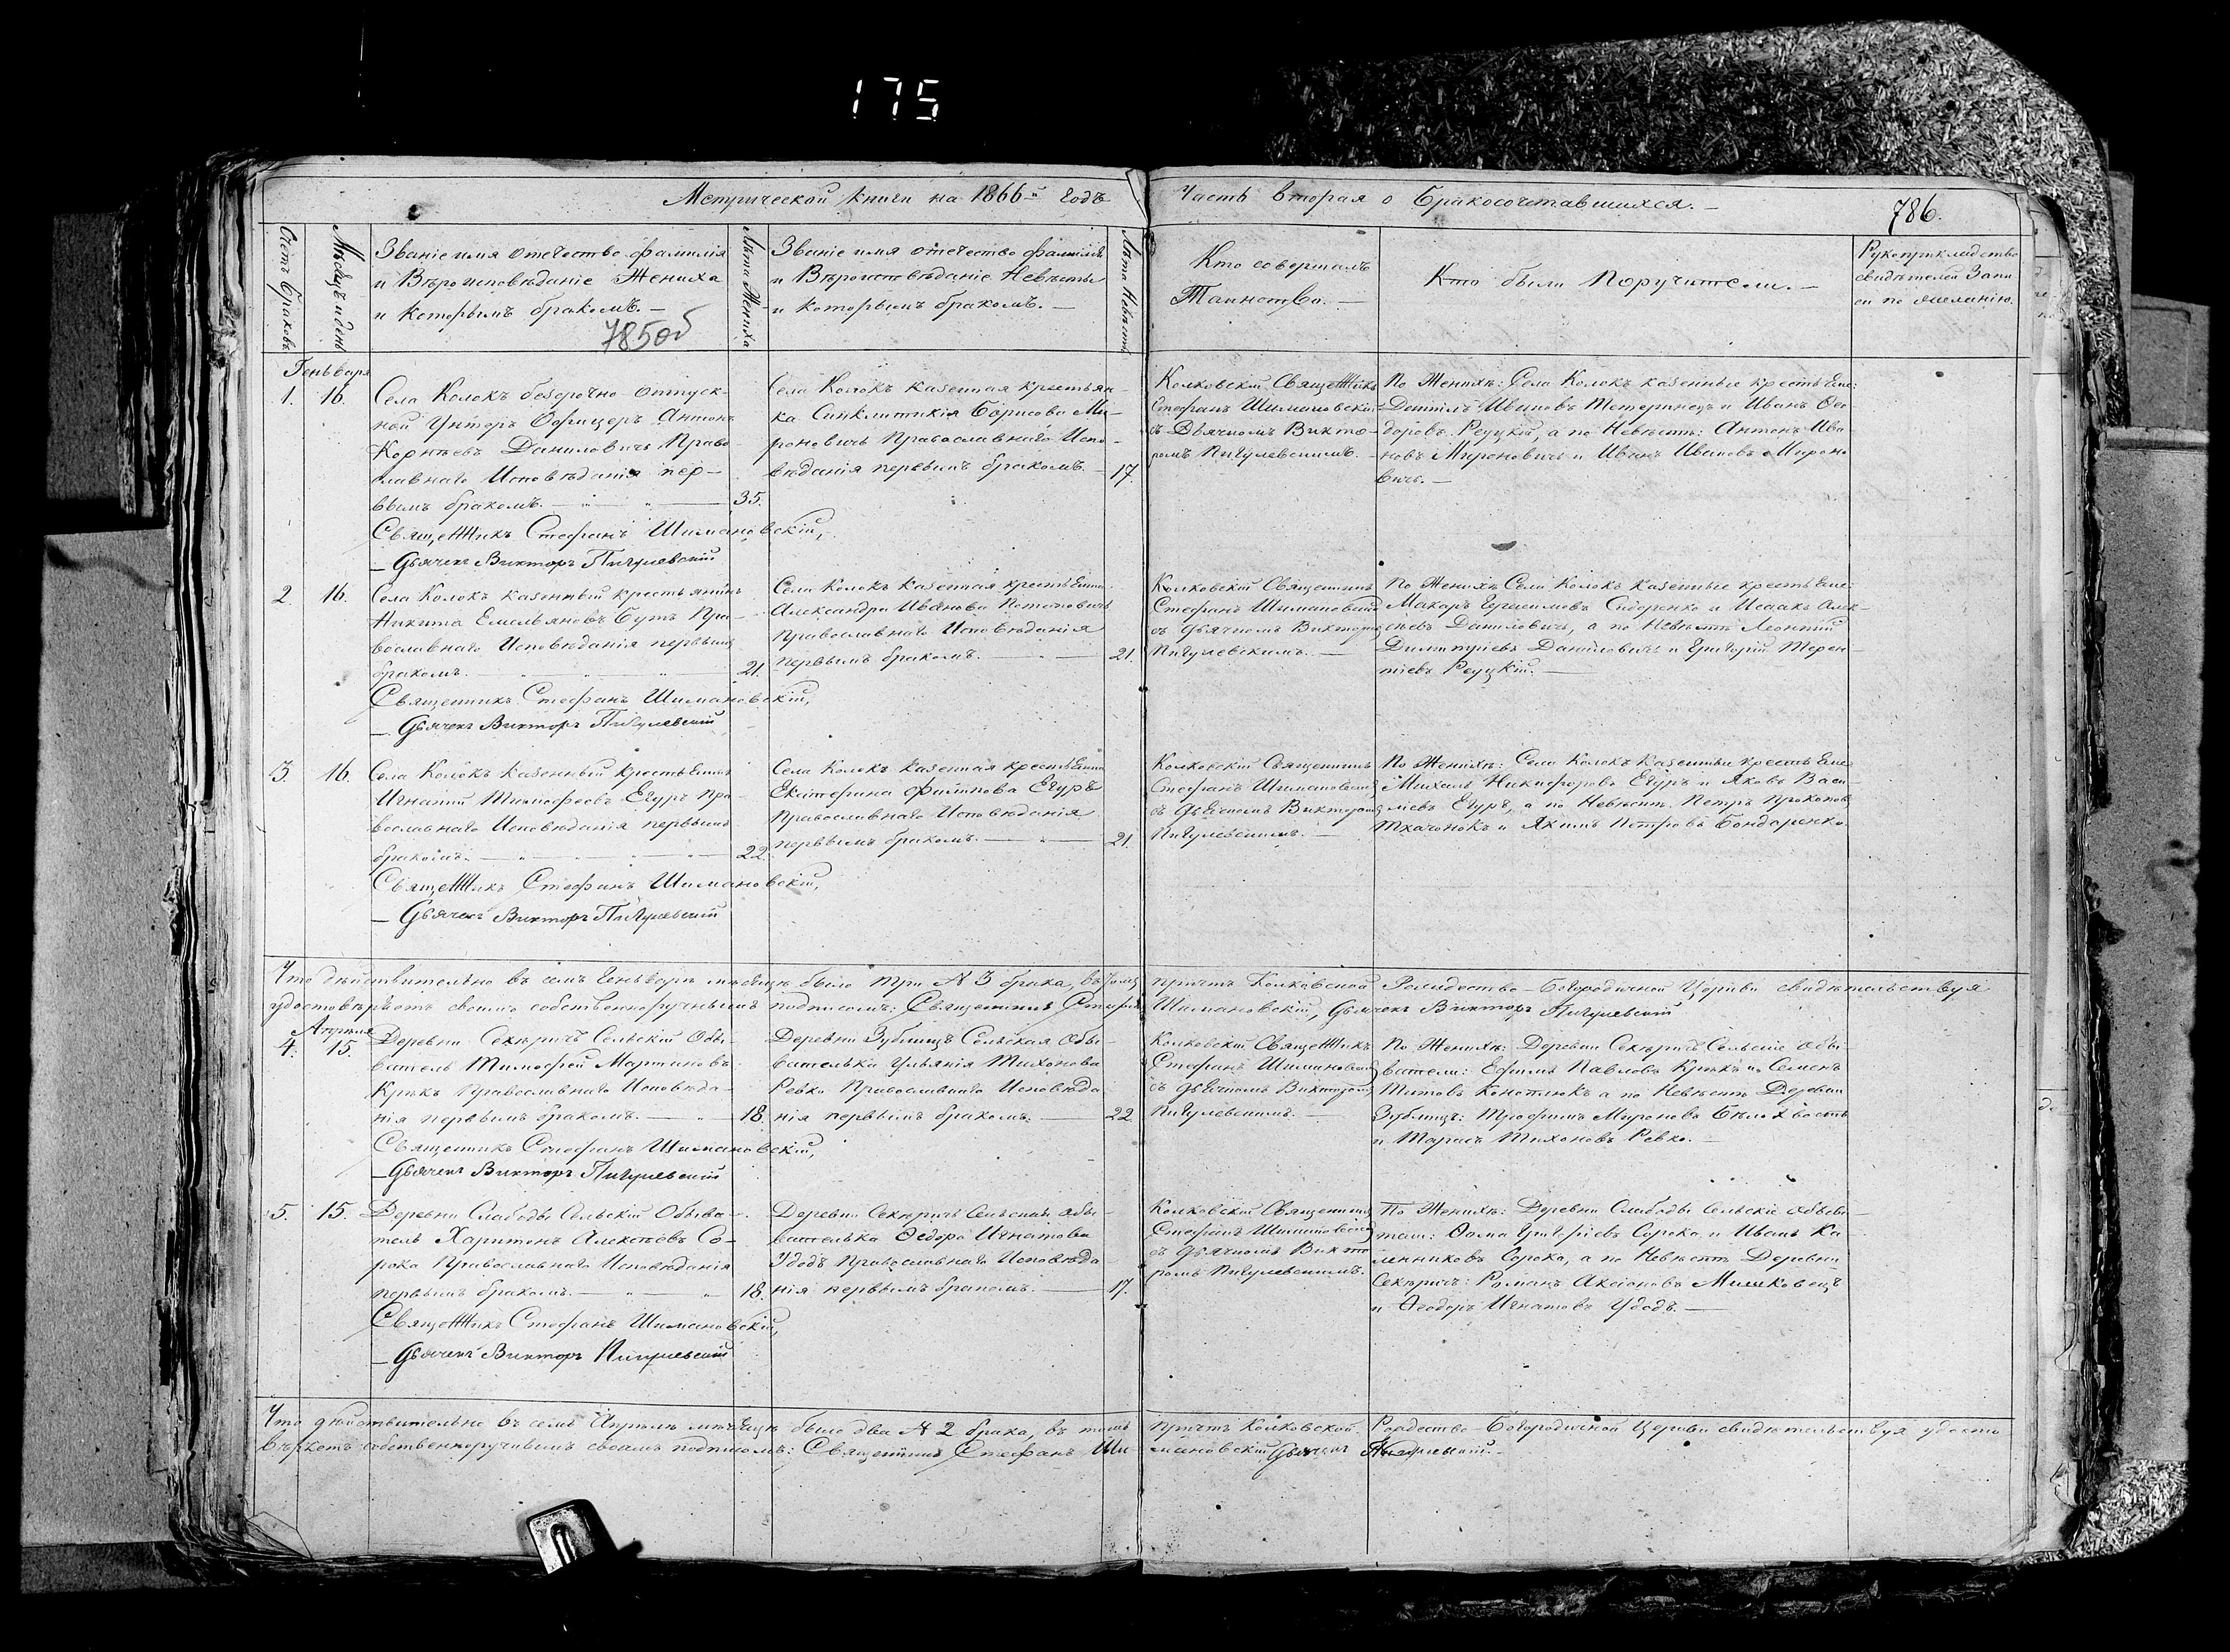 175
Метрической книги на 1866й годъ
Часть вторая о бракосочетавшихся.
786.
Счетъ браковъ
Мѣсяцъ и день
Званіе имя отечество фамилія
и Вѣроисповѣданіе Жениха
и которымъ бракомъ.
785об
Лѣта Жениха
Званіе имя отечество фамилія
и Вѣроисповѣданіе Невѣсты
и которымъ бракомъ.
Лѣта Невѣсты
Кто совершалъ
Таинство.
Кто были Поручители.
Рукоприкладство
свидѣтелей Запи
си по желанію.
Геньваря
1. 16.
Села Колокъ безсрочно отпуск-
ной Унтеръ Офицеръ Антонъ
Корнѣевъ Даниловичъ Право-
славнаго Исповѣданія пер-
вымъ бракомъ. 35.
Священникъ Стефанъ Шимановскій,
Дьячекъ Викторъ Пигулевскій
Села Колокъ казенная крестьян-
ка Синклитикія Борисова Ми-
роновичъ Православнаго Испо-
вѣданія первымъ бракомъ. 17.
Колковскій Священникъ
Стефанъ Шимановскій
съ Дьячкомъ Викто-
ромъ Пигулевскимъ.
По Женихѣ: Села Колокъ казенные крестьяне:
Даніилъ Ивановъ и Иванъ Ѳео
доровъ Рецкій, а по Невѣстѣ: Антонъ Ива
новъ Мироновичъ и Иванъ Ивановъ Мироно
вичъ.
2. 16.
Села Колокъ казенный крестьянинъ
Никита Емельяновъ Бутъ Пра-
вославнаго Исповѣданія первымъ
бракомъ. 21.
Священникъ Стефанъ Шимановскій,
Дьячекъ Викторъ Пигулевскій
Села Колокъ казенная крестьянка
Александра Иванова Потаповичъ
Православнаго Исповѣданія
первымъ бракомъ. 21.
Колковскій Священникъ
Стефанъ Шимановскій
съ Дьячкомъ Викторомъ
Пигулевскимъ.
По Женихѣ Села Колокъ казенные крестьяне:
Макаръ Герасимовъ Сидоренко и Исаакъ Алек-
сѣевъ Даниловичъ, а по Невѣстѣ Леонтій
Димитріевъ Даниловичъ и Григорій Терен-
тіевъ Рецкій.
3. 16.
Села Колокъ казенный крестьянинъ
Игнатій Тимофеевъ Егуръ Пра-
вославнаго Исповѣданія первымъ
бракомъ. 22.
Священникъ Стефанъ Шимановскій,
Дьячекъ Викторъ Пигулевскій
Села Колокъ казенная крестьянка
Екатерина Филипова Егуръ
Православнаго Исповѣданія
первымъ бракомъ. 21.
Колковскій Священникъ
Стефанъ Шимановскій
съ Дьячкомъ Викторомъ
Пигулевскимъ.
По Женихѣ: Села Колокъ казенные крестьяне
Михаилъ Никифоровъ Егуръ и Яковъ Васи-
ліевъ Егуръ, а по Невѣстѣ Петръ Прокоповъ
Ткачонокъ и Якимъ Петровъ Бондаренко.
Что дѣйствительно въ семъ Геньварѣ мѣсяцѣ было три № 3 брака, въ томъ причтъ Колковской Рождество-Богородичной Церкви свидѣтельствуя
удостовѣряетъ своимъ собственноручнымъ подписомъ: Священникъ Стефанъ Шимановскій, Дьячекъ Викторъ Пигулевскій
Апрѣля
4. 15.
Деревни Секѣричъ Сельскій Обы-
ватель Тимофей Мартиновъ
Крукъ Православнаго Исповѣда-
нія первымъ бракомъ. 18.
Священникъ Стефанъ Шимановскій,
Дьячекъ Викторъ Пигулевскій
Деревни Зублищъ Сельская Обы-
вателька Ульянія Тихонова
Ревко Православнаго Исповѣда
нія первымъ бракомъ. 22.
Колковскій Священникъ
Стефанъ Шимановскій
съ Дьячкомъ Викторомъ
Пигулевскимъ.
По Женихѣ: Деревни Секѣричъ Сельскіе Обы-
ватели: Ефимъ Павловъ Крукъ и Семенъ
Титовъ а по Невѣстѣ Деревни
Зублищъ: Трофимъ Мироновъ Бѣлихвостъ
и Тарасъ Тихоновъ Ревко.
5. 15.
Деревни Слабоды Сельскій Обыва-
тель Харитонъ Алексѣевъ Со-
рока Православнаго Исповѣданія
первымъ бракомъ. 18.
Священникъ Стефанъ Шимановскій,
Дьячекъ Викторъ Пигулевскій
Деревни Секѣричъ Сельская Обы-
вателька Ѳедора Игнатова
Удодъ Православнаго Исповѣда-
нія первымъ бракомъ. 17.
Колковскій Священникъ
Стефанъ Шимановскій
съ Дьячкомъ Викто
ромъ Пигулевскимъ.
По Женихѣ: Деревни Слабоды Сельскіе Обыва-
тели: Ѳома Григоріевъ Сорока и Иванъ Ка
лениковъ Сорока, а по Невѣстѣ Деревни
Секѣричъ: Романъ Аксіоновъ Мишковецъ
и Ѳеодоръ Игнатовъ Удодъ.
Что дѣйствительно въ семъ Апрѣлѣ мѣсяцѣ было два № 2 брака, въ томъ причтъ Колковской Рождество-Богородичной Церкви свидѣтельствуя удосто
вѣряетъ собственноручнымъ своимъ подписомъ: Священникъ Стефанъ Шимановскій Дьячекъ Пигулевскій.